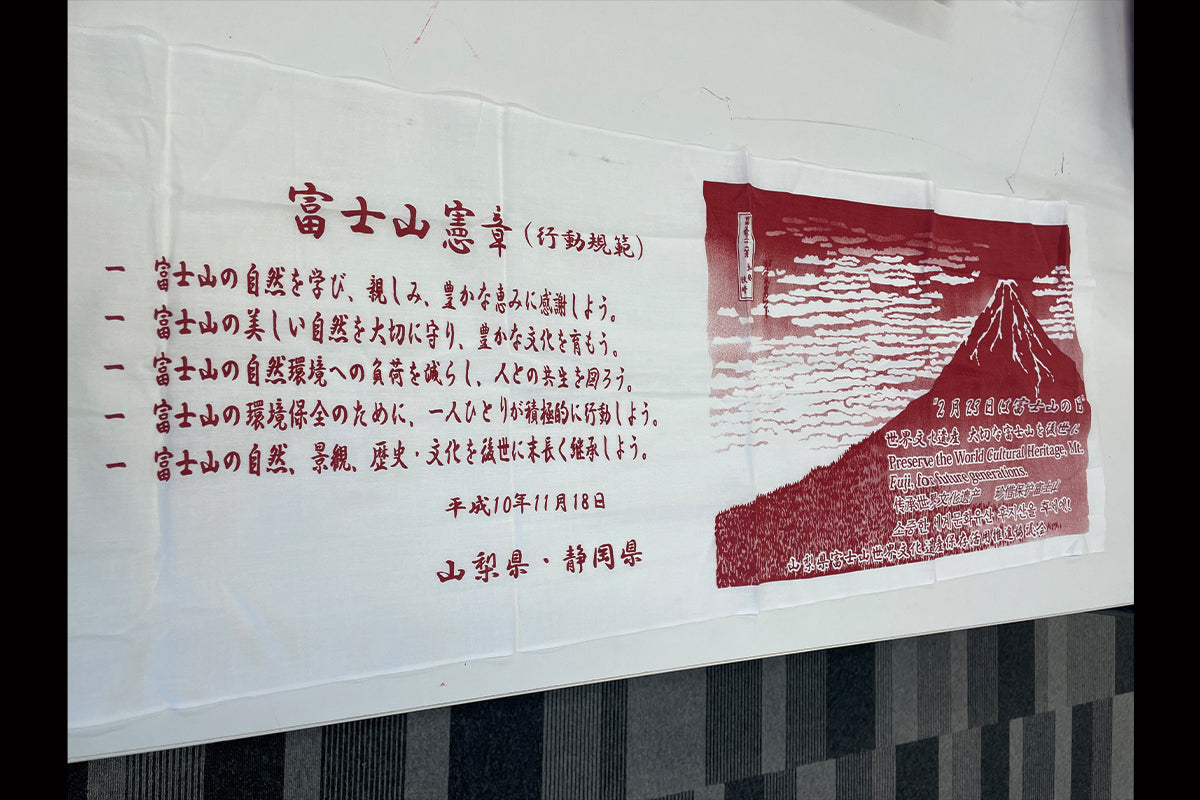 富士山憲章（行動規範）
一 富士山の自然を学び、親しみ、豊かな恵みに感謝しよう。
一 富士山の美しい自然を大切に守り、豊かな文化を育もう。
一 富士山の自然環境への負荷を減らし、人との共生を図ろう。
一 富士山の環境保全のために、一人ひとりが積極的に行動しよう。
一 富士山の自然、景観、歴史・文化を後世に末長く継承しよう。
平成10年11月18日
山梨県・静岡県
"2月23日は富士山の日"
世界文化遺産 大切な富士山を後世に
Preserve the World Cultural Heritage, Mt.
Fuji, for future generations.
传承世界文化遗产 珍惜保护富士山
소중한 세계문화유산 후지산을 후세에!
山梨県富士山世界文化遺産保存活用推進協議会